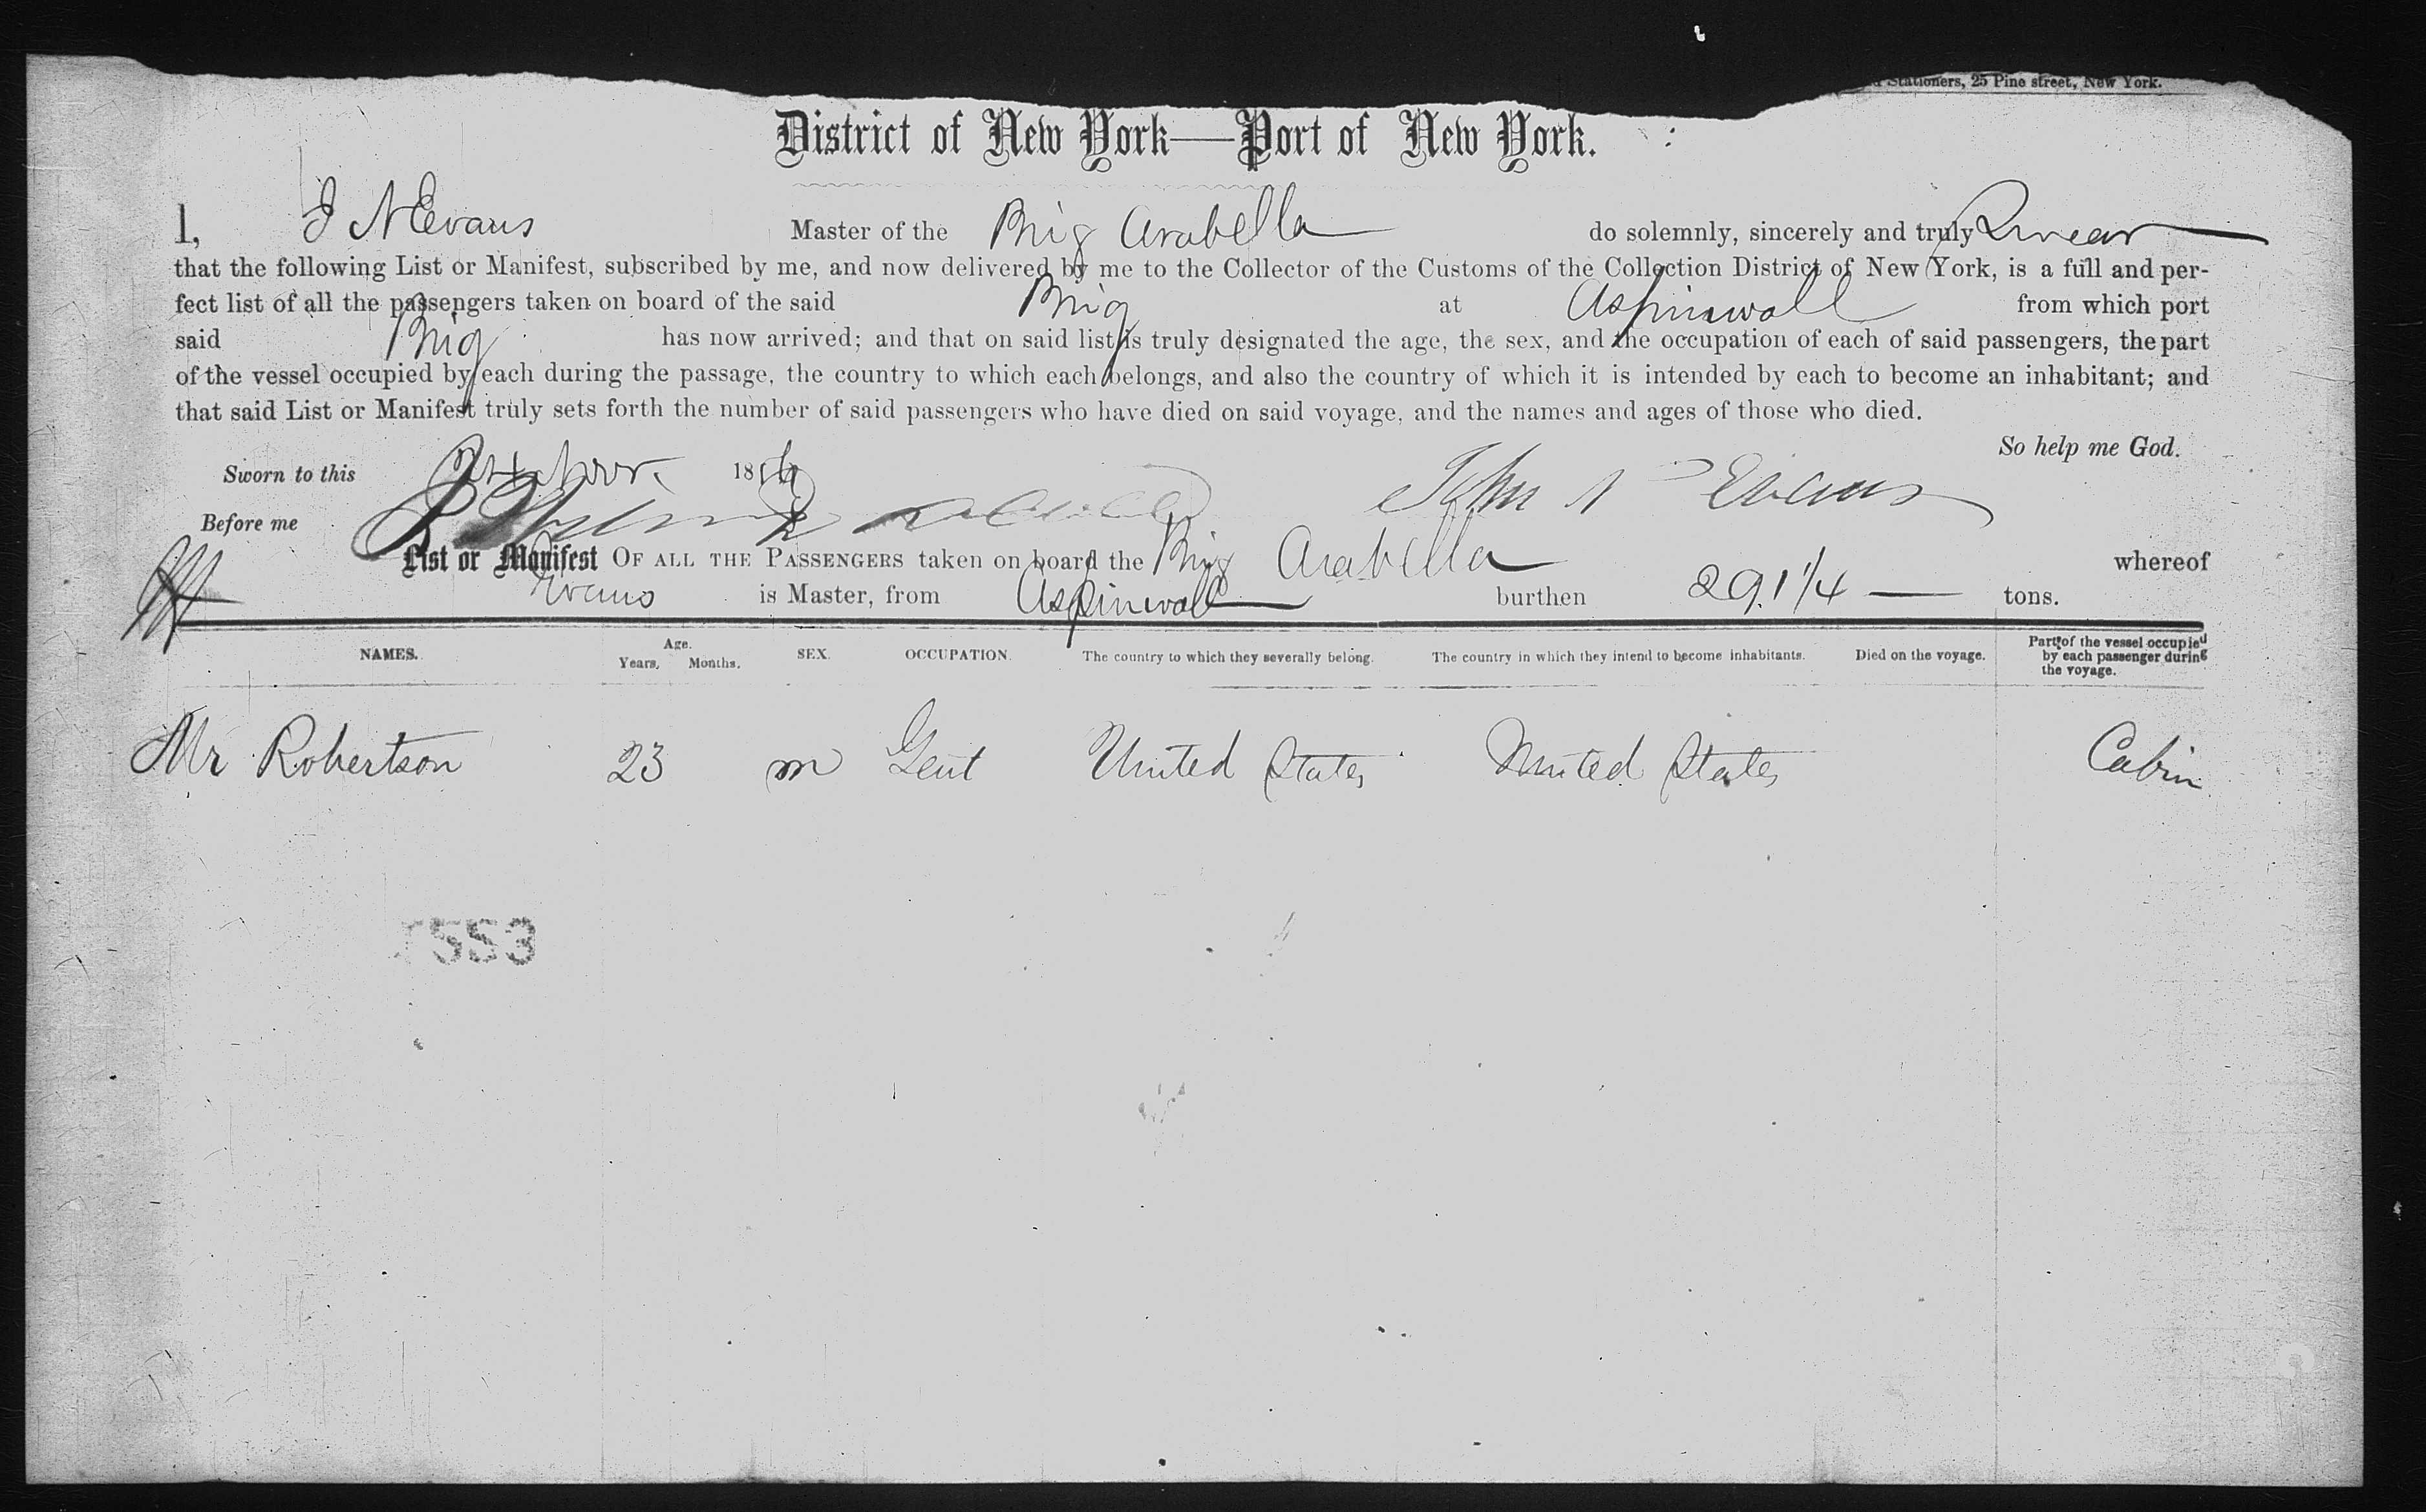 Stationers, 25 Pine street, New York.
District of New York—Port of New York.
I, J N Evans Master of the Brig Arabella do solemnly, sincerely and truly Swear
that the following List or Manifest, subscribed by me, and now delivered by me to the Collector of the Customs of the Collection District of New York, is a full and per-
fect list of all the passengers taken on board of the said Brig at Aspinwall from which port
said Brig has now arrived; and that on said list is truly designated the age, the sex, and the occupation of each of said passengers, the part
of the vessel occupied by each during the passage, the country to which each belongs, and also the country of which it is intended by each to become an inhabitant; and
that said List or Manifest truly sets forth the number of said passengers who have died on said voyage, and the names and ages of those who died.
So help me God.
Sworn to this 18
John N Evans
Before me
List or Manifest OF ALL THE PASSENGERS taken on board the Brig Arabella whereof
Evans is Master, from Aspinwall burthen 291 1/4 tons.
NAMES. Age. Years, Months. SEX. OCCUPATION. The country to which they severally belong. The country in which they intend to become inhabitants. Died on the voyage. Part of the vessel occupied by each passenger during the voyage.
Mr Robertson 23 m Gent United States United States Cabin
1553